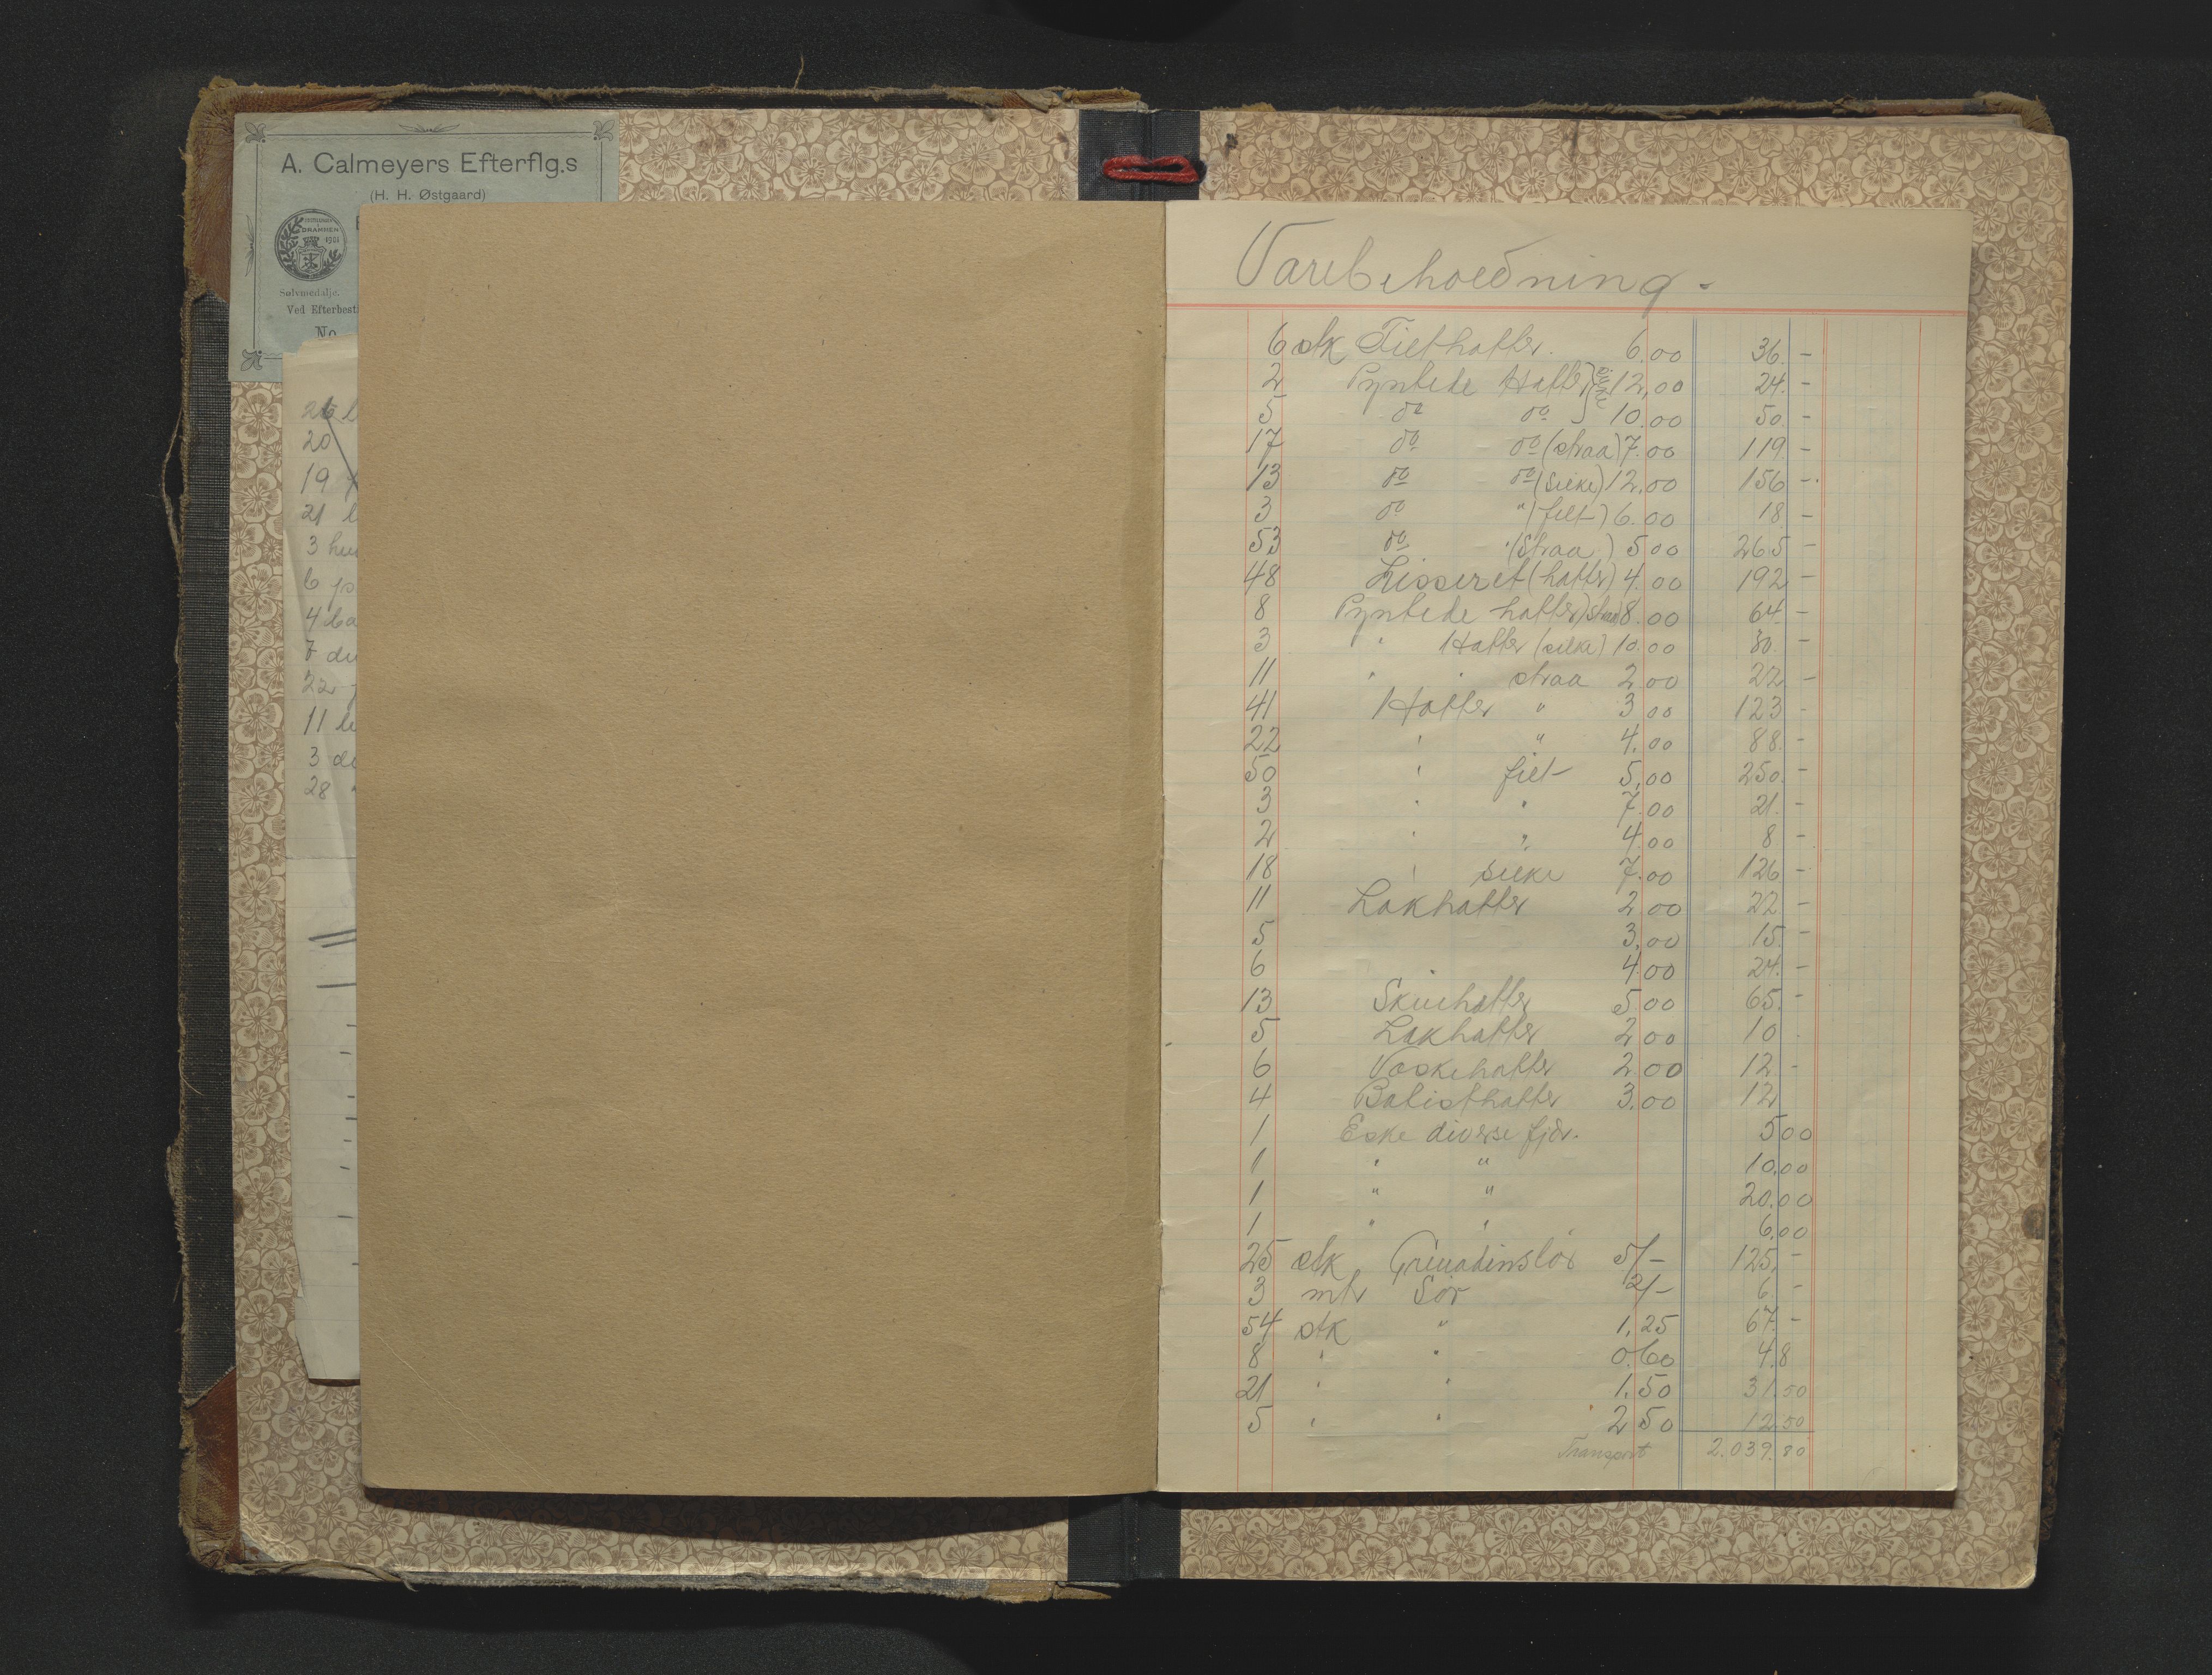 A. Calmeyers Efterflg.s
(H. H. Østgaard)
DRAMMEN
1901
Sølvmedalje.
Ved Efterbesti
No.
26 l
20
19
21 l
3 hu
6 ps
4 ba
7 du
22
11 le
3 de
28 "
Varebeholdning.
6 stk Filthatter. 6.00 36. -
2 Pyntede Hatter silke 12,00 24. -
5 do do 10.00 50. -
17 do do (straa) 7.00 119. -
13 do do (silke) 12.00 156 -
3 do " (filt) 6.00 18 -
53 do " (straa) 5 00 265 -
48 Lisseret (hatter) 4.00 192 -
8 Pyntede hatter (straa) 8.00 64. -
3 " Hatter (silke) 10.00 30. -
11 " " straa 2 00 22 -
41 Hatter " 3 00 123 -
22 " " 4.00 88. -
50 " filt 5,00 250. -
3 " " 7.00 21. -
2 " " 4.00 8 -
18 " silke 7.00 126 -
11 Lakhatter 2 00 22 -
5 3,00 15. -
6 4 00 24. -
13 Skuehatter 5 00 65. -
5 Lakhatter 2 00 10
6 Vaskehatter 2 00 12 -
4 Batisthatter 3.00 12
1 Eske diverse fjær. 5 00
1 " " 10.00
1 " " 20.00
1 " " 6,00
25 stk Grenadinslör 5/- 125, -
3 mtr Sör 2/- 6. -
54 stk " 1,25 67. -
8 " " 0.60 4.8
21 " " 1.50 31.50
5 " " 2 50 12 50
Transport 2.039.80